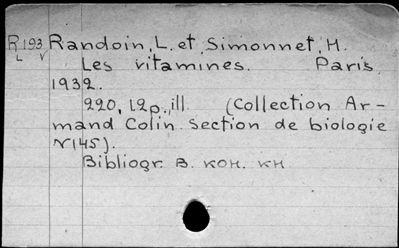 R 193 Randoin, L. et Simonnet, H.
L V
Les vitamines. Paris,
1932.
220, [2]p., ill. (Collection Ar-
mand Colin. Section de biologie
N145).
Bibliogr. В. кон. кн